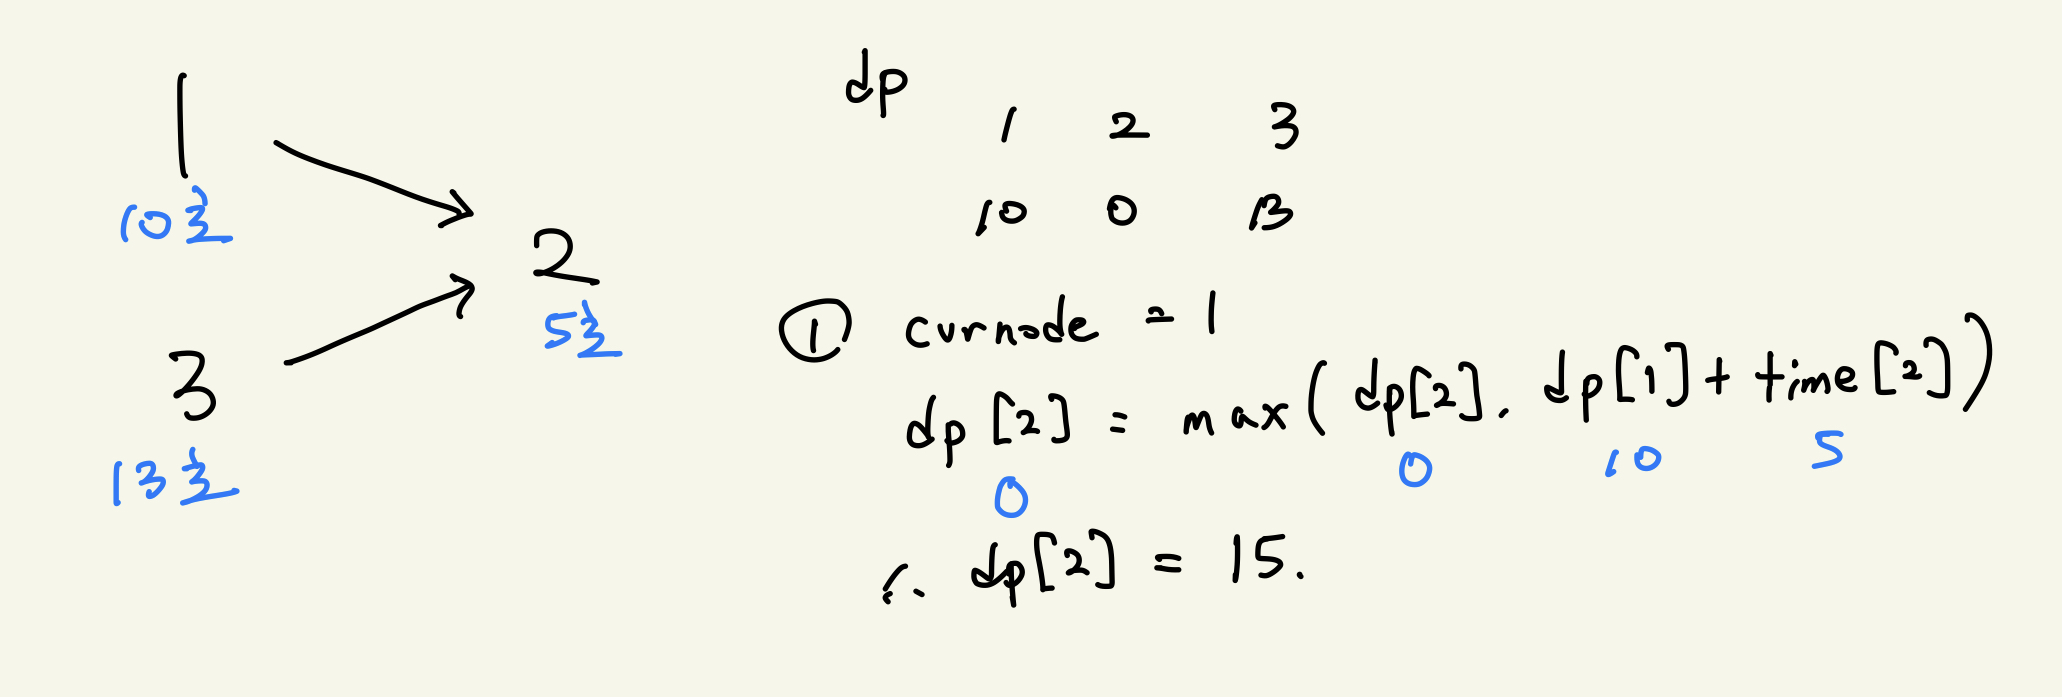 1
10초
3
13초
2
5초
dp
1 2 3
10 0 13
① curnode = 1
dp[2] = max(dp[2], dp[1] + time[2])
0 0 10 5
∴ dp[2] = 15.